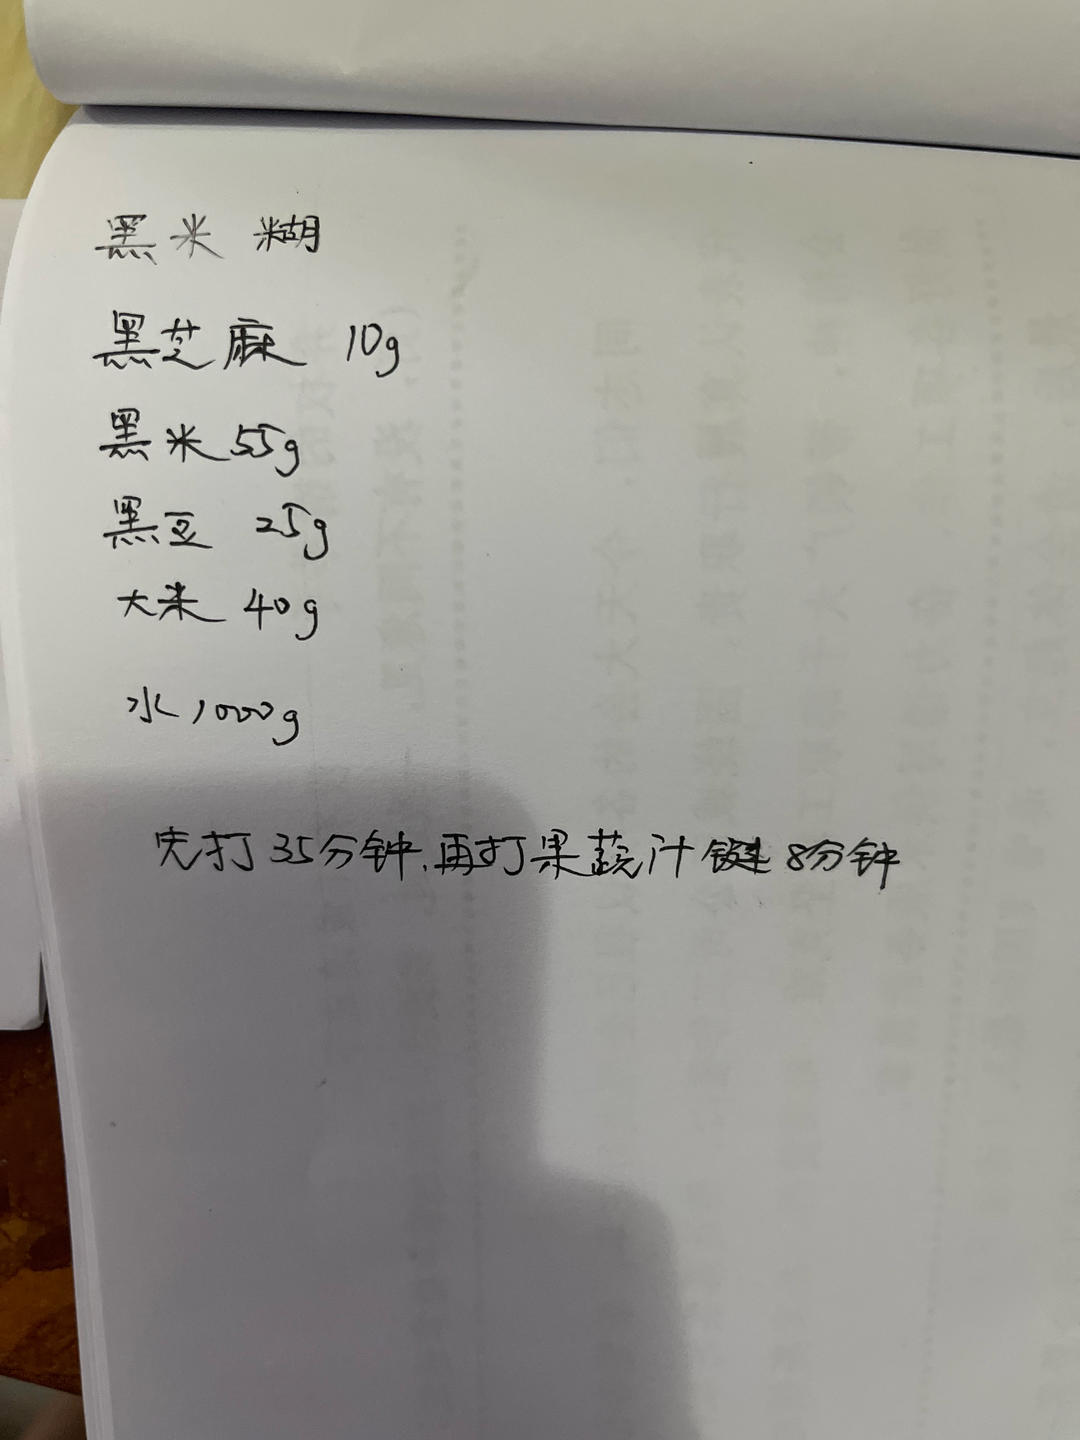 黑米糊
黑芝麻 10g
黑米 55g
黑豆 25g
大米 40g
水 1000g
先打35分钟,再打果蔬汁键8分钟